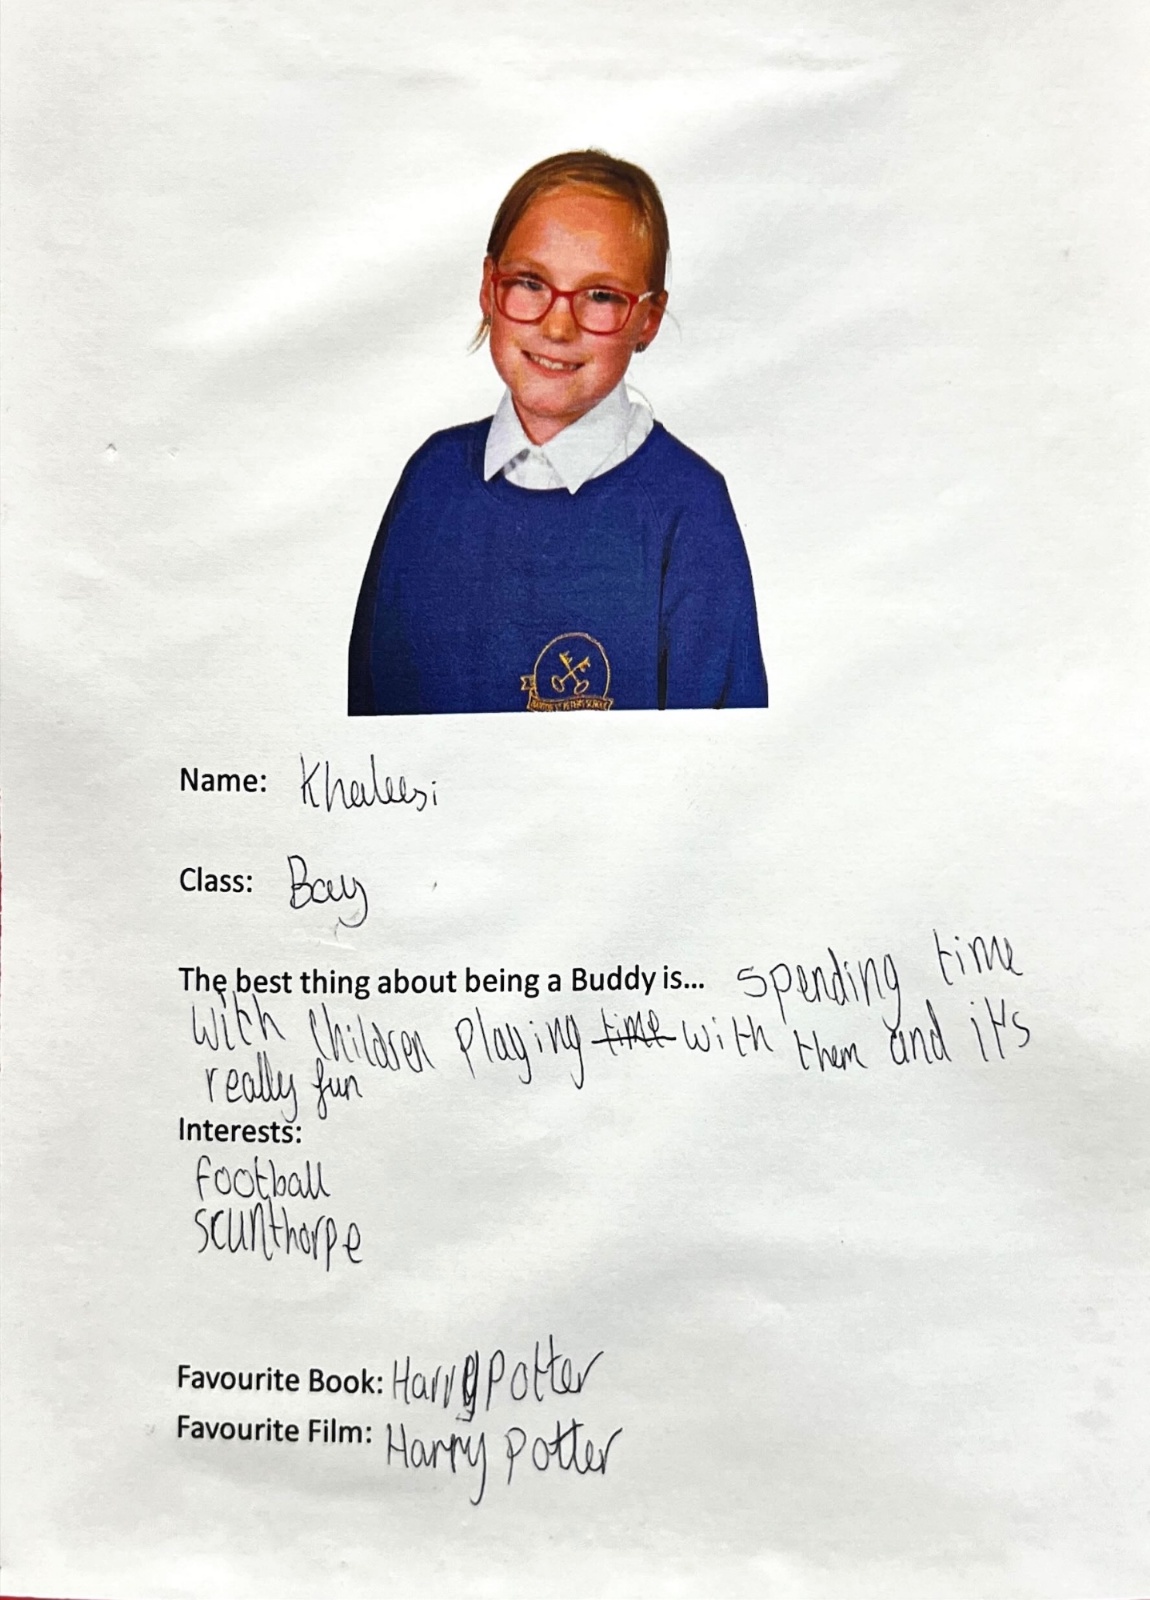 Name: Khaleesi
Class: Bay
The best thing about being a Buddy is... spending time
with children playing ~~time~~ with them and it's
really fun
Interests:
football
scunthorpe
Favourite Book: Harry Potter
Favourite Film: Harry Potter